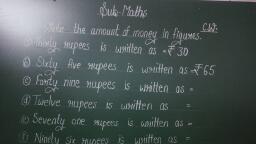 Sub:- Maths
C.W:-
Write the amount of money in figures.
a) Thirty rupees is written as = ₹ 30
b) Sixty five rupees is written as = ₹ 65
c) Forty nine rupees is written as =
d) Twelve rupees is written as =
e) Seventy one rupees is written as =
f) Ninety six rupees is written as =